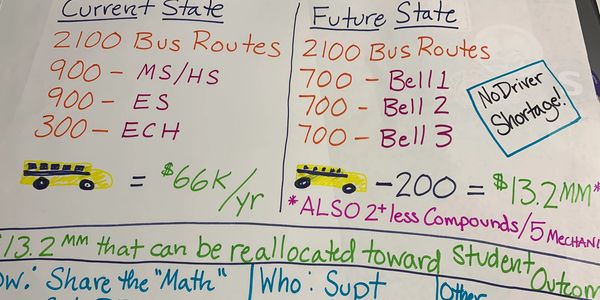 Current State
2100 Bus Routes
900 - MS/HS
900 - ES
300 - ECH
= $66K/yr
Future State
2100 Bus Routes
700 - Bell 1
700 - Bell 2
700 - Bell 3
No Driver
Shortage!
-200 = $13.2MM*
*ALSO 2+ less Compounds/5 MECHANI
$13.2MM that can be reallocated toward Student Outcom
ow: Share the "Math"
Who: Supt
Other